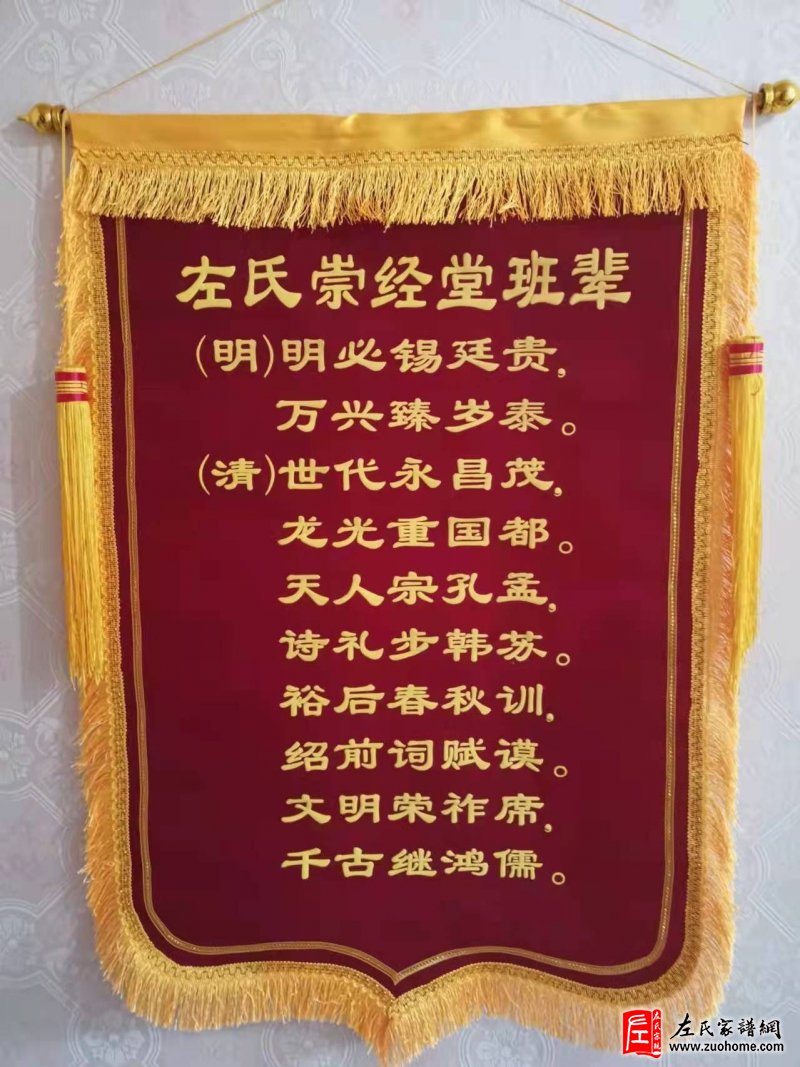 左氏崇经堂班辈
(明)明必锡廷贵,
万兴臻岁泰。
(清)世代永昌茂,
龙光重国都。
天人宗孔孟,
诗礼步韩苏。
裕后春秋训,
绍前词赋谟。
文明荣祚席,
千古继鸿儒。
左氏家譜網
www.zuohome.com